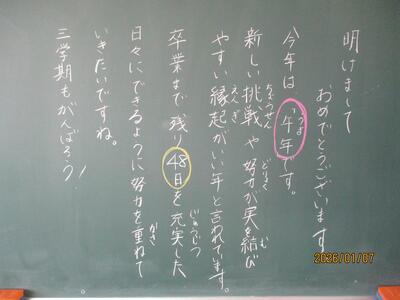 明けまして
おめでとうございます
今年は「午年」です。
うま
新しい挑戦や努力が実を結び
ちょうせん
どりょく
むす
やすい縁起がいい年と言われてます。
えんぎ
卒業まで残り48日を充実した
じゅうじつ
日々にできるように努力を重ねて
かさ
いきたいですね。
三学期もがんばろう!
2026/01/07